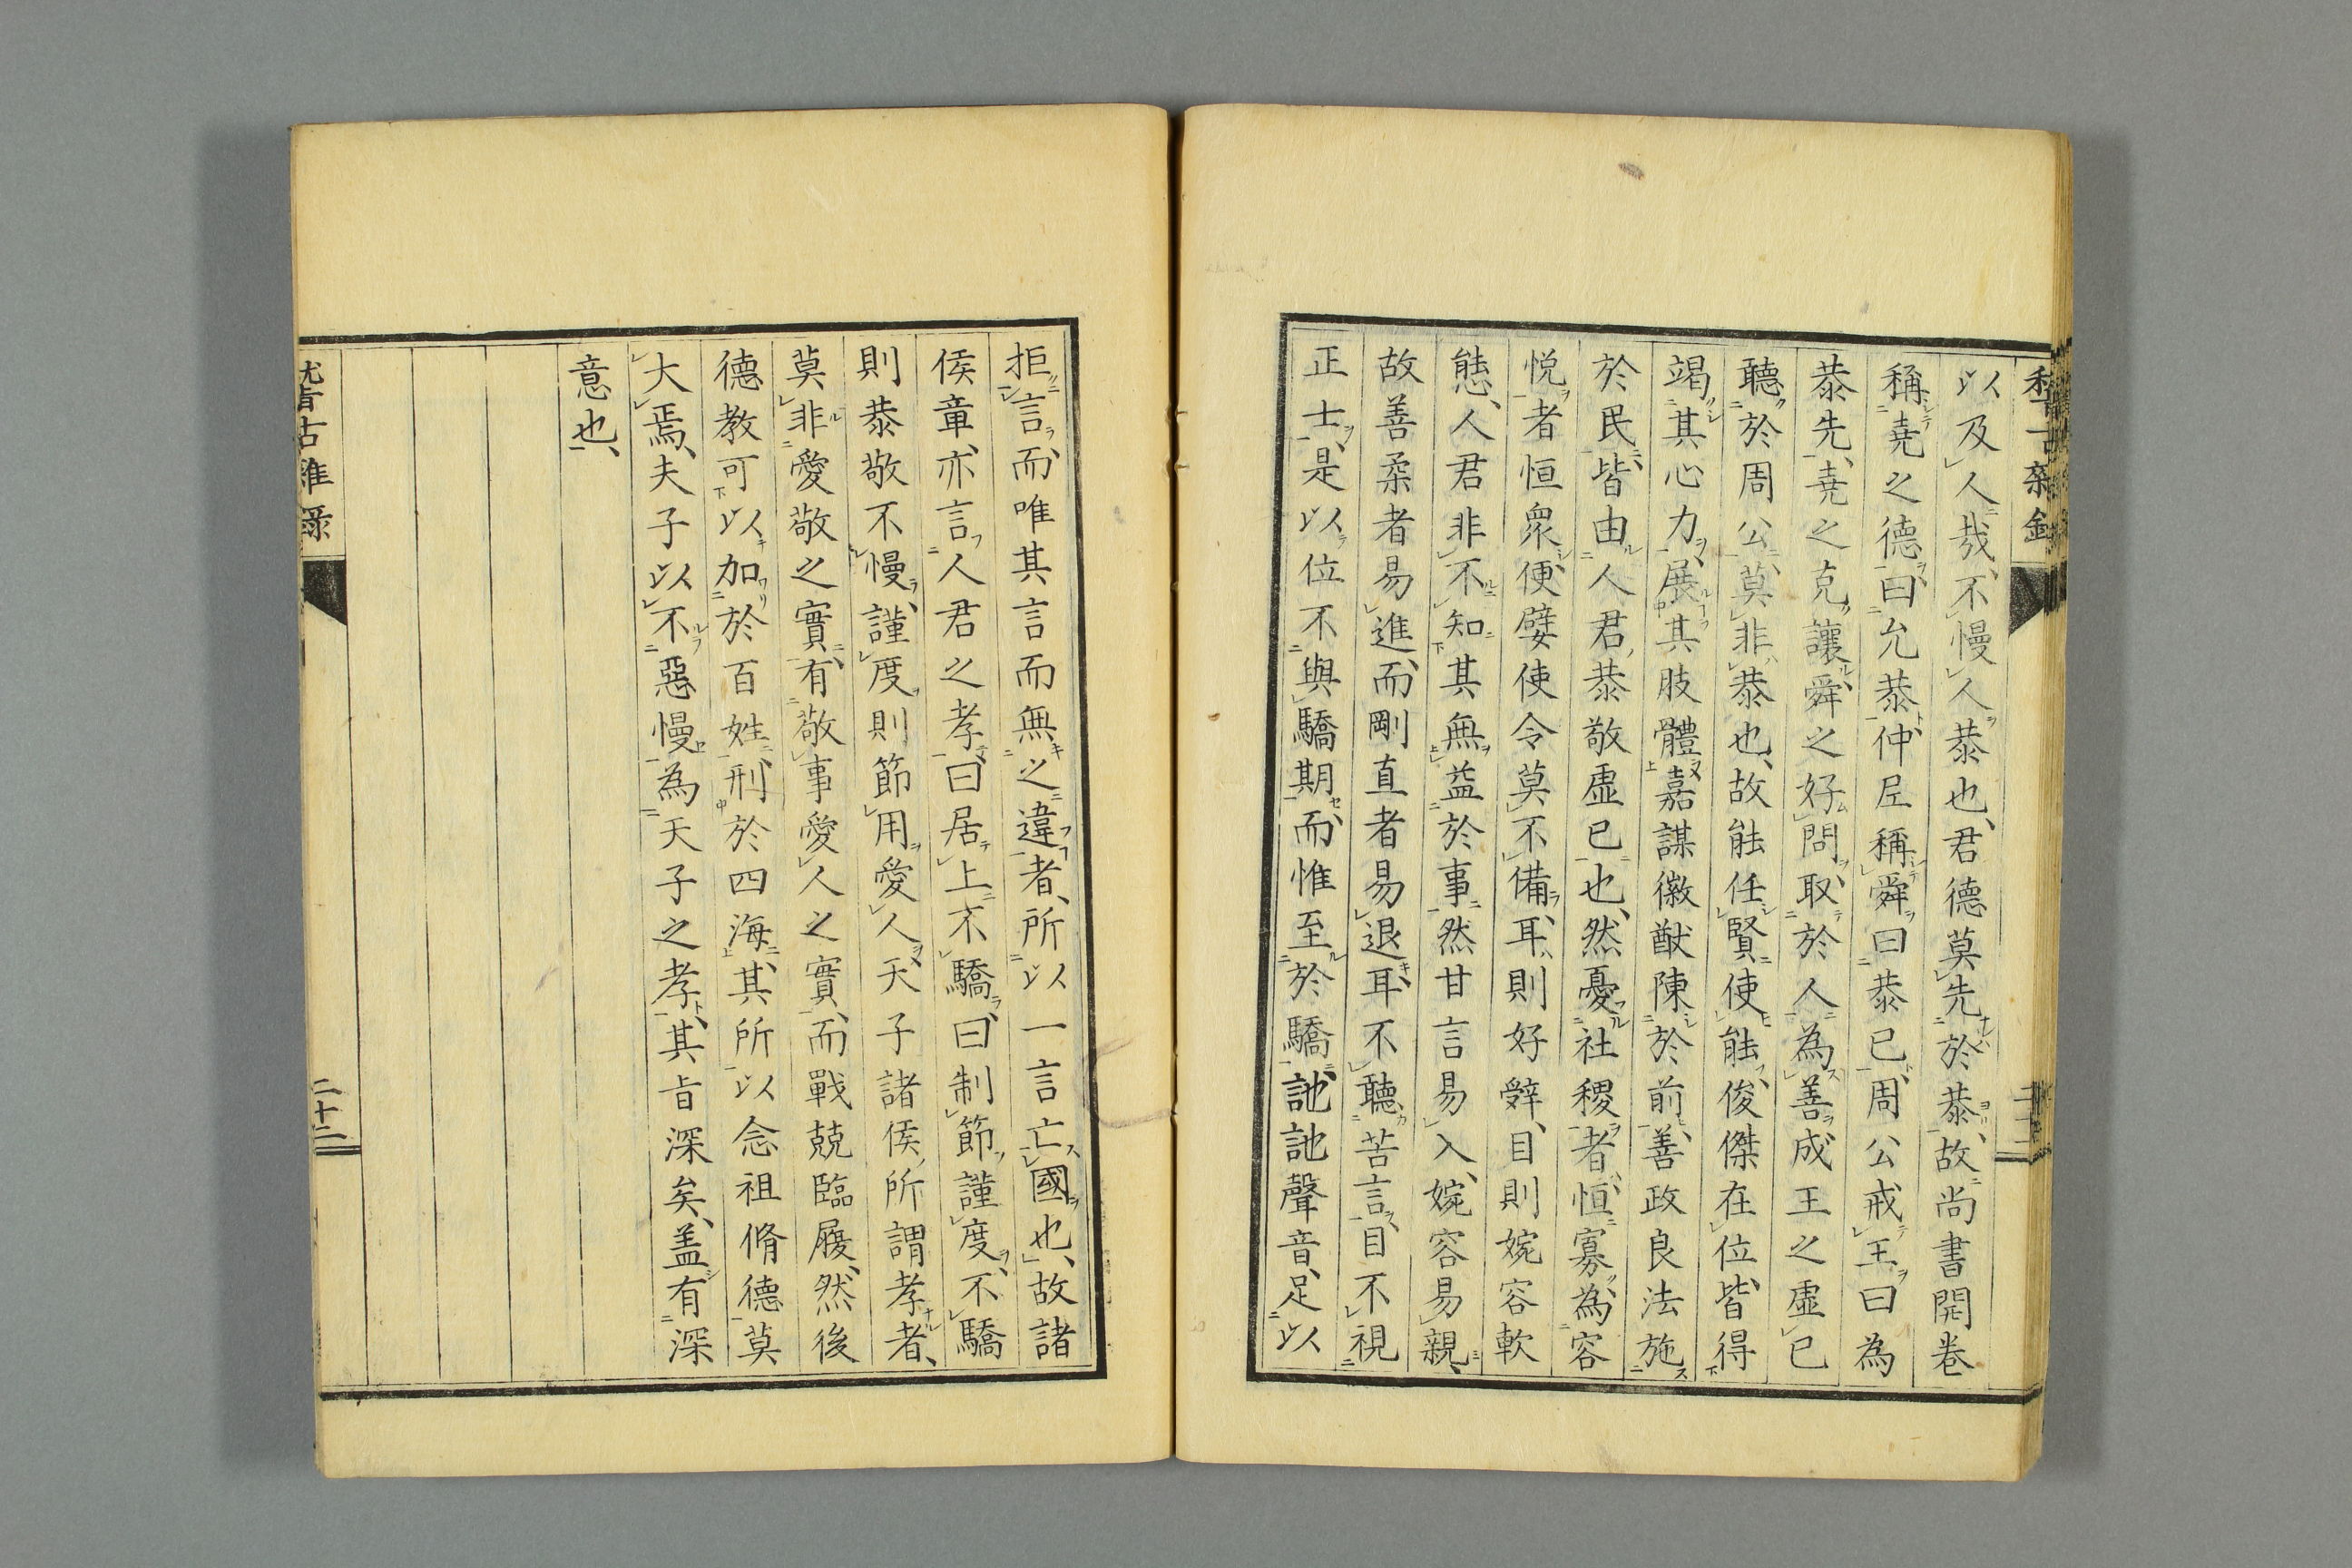 以及人哉、不慢人恭也、君德莫先於恭、故尚書開卷
稱堯之德、曰允恭、仲尼稱舜曰恭已、周公戒王曰為
恭先、堯之克讓、舜之好問、取於人為善、成王之虛已
聽於周公、莫非恭也、故能任賢使能、俊傑在位、皆得
竭其心力、展其肢體、嘉謀徽猷陳於前、善政良法施
於民、皆由人君恭敬虛已也、然憂社稷者、恒寡、為容
悅者恒衆、便嬖使令莫不備耳、耳則好辭、目則婉容軟
態、人君非不知其無益於事、然甘言易入、婉容易親、
故善柔者易進、而剛直者易退耳、不聽苦言、目不視
正士、是以位不與驕期、而惟至於驕、訑訑聲音、足以
拒言、而唯其言而無之違者、所以一言亡國也、故諸
侯章、亦言人君之孝、曰居上不驕、曰制節謹度、不驕
則恭敬不慢、謹度則節用愛人、天子諸侯、所謂孝者、
莫非愛敬之實、有敬事愛人之實、而戰兢臨履、然後
德教可以加於百姓、刑於四海、其所以念祖脩德莫
大焉、夫子以不惡慢為天子之孝、其旨深矣、盖有深
意也、
稽古雜錄
二十二